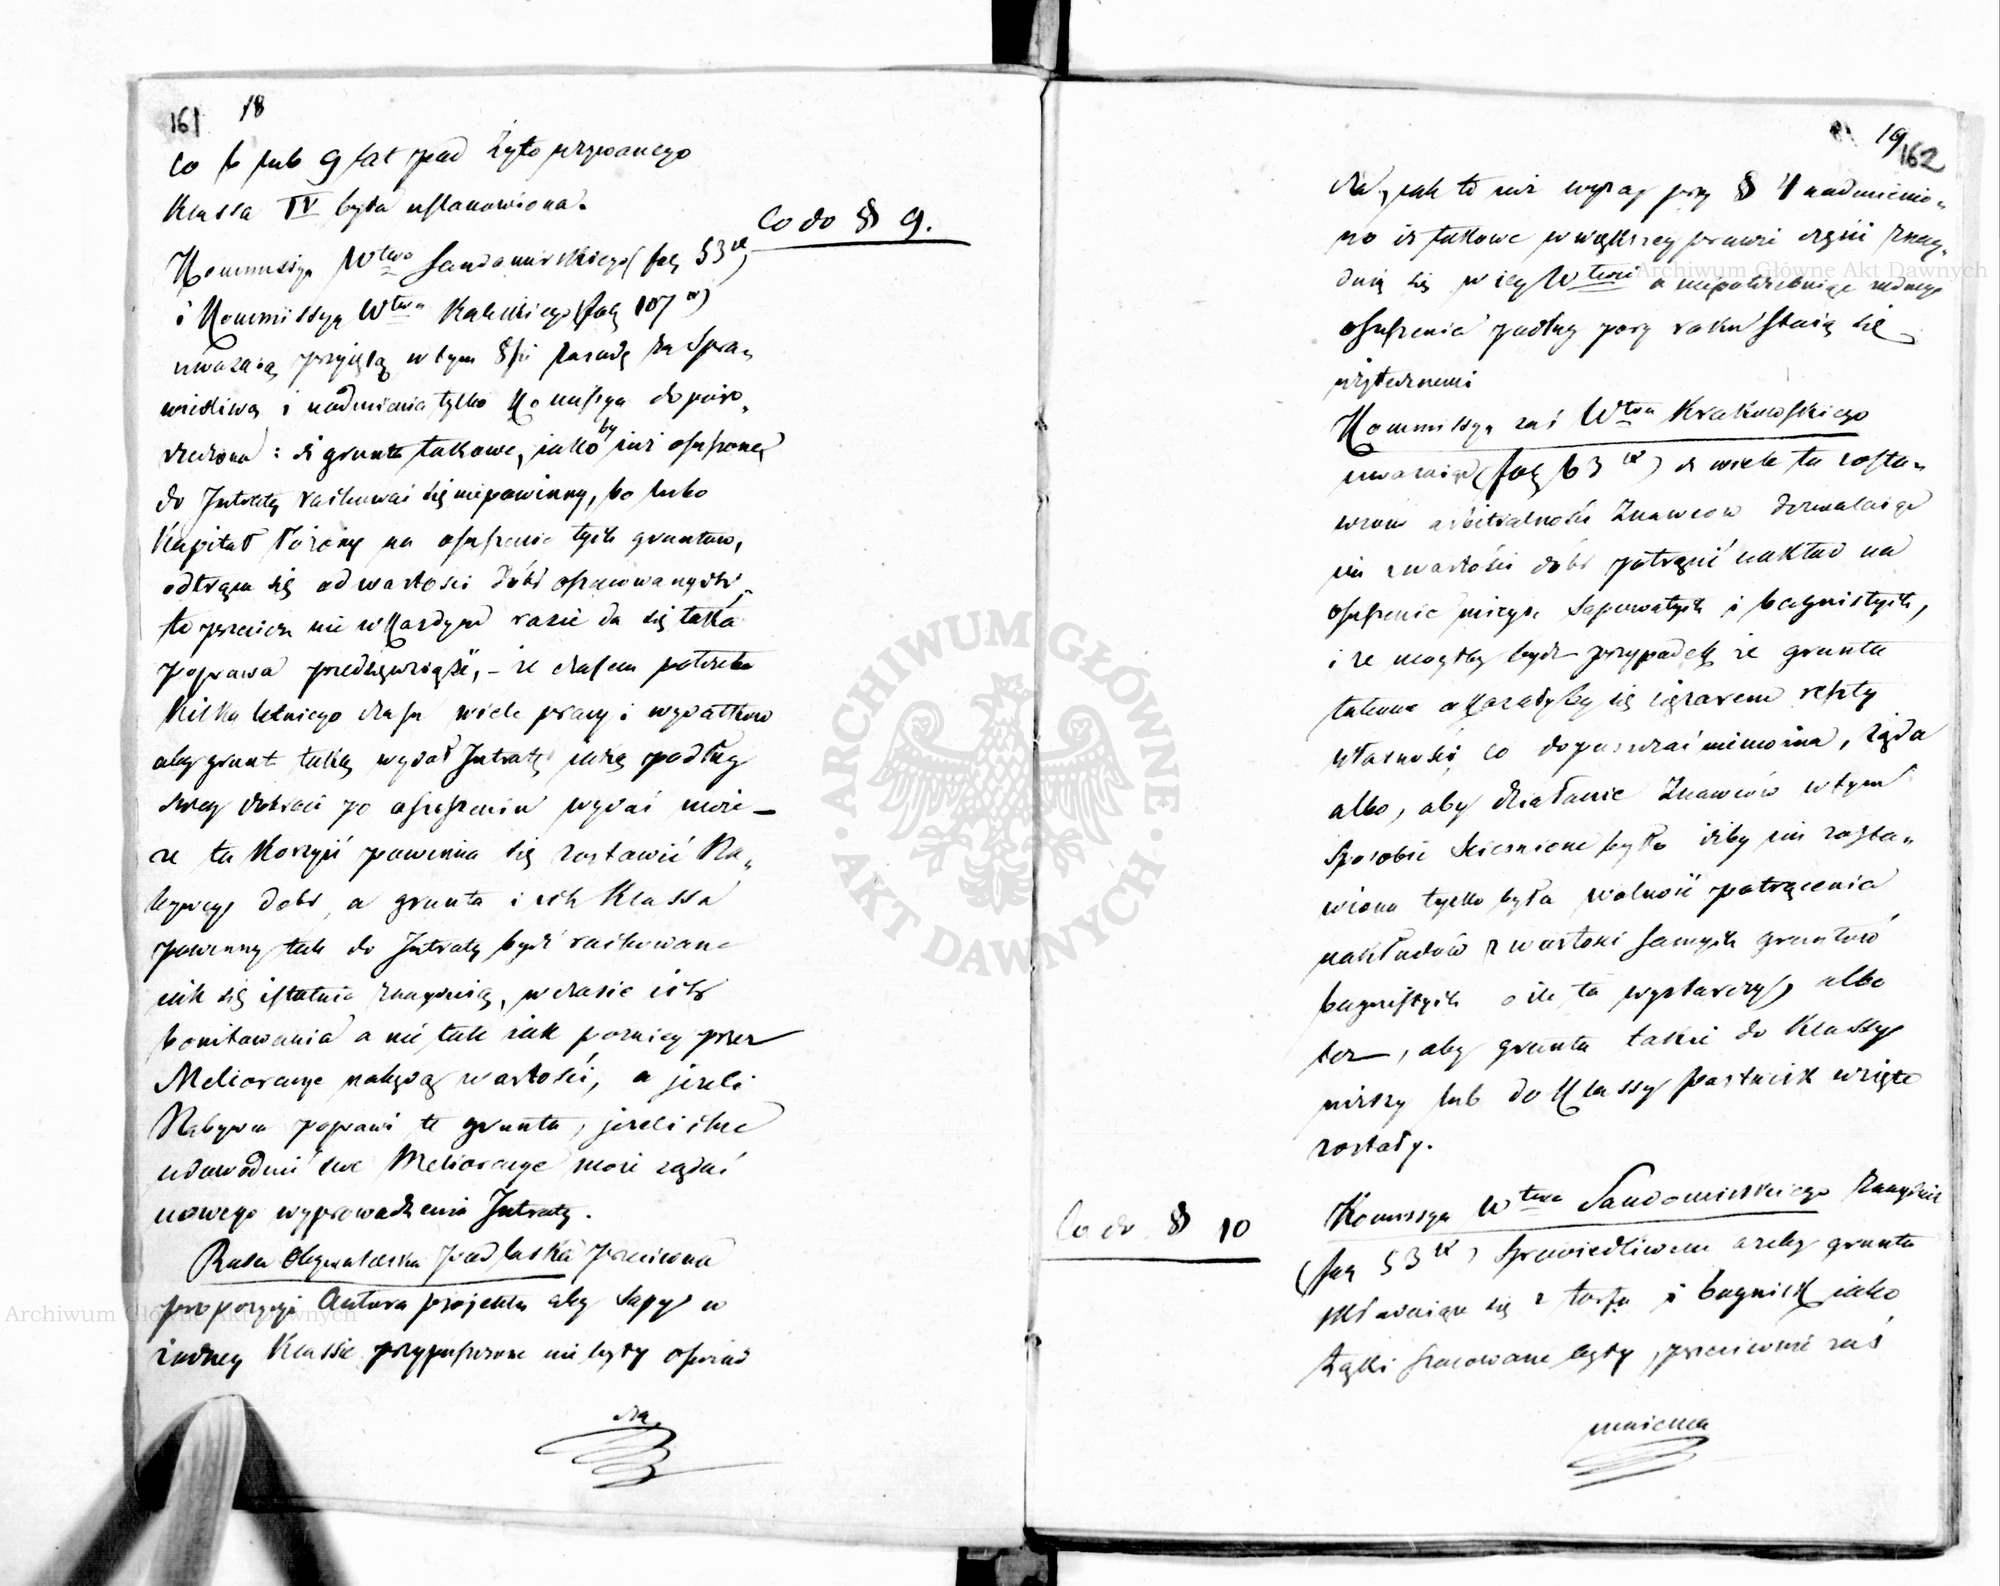 161 18
co 6 lub 9 lat pod żyto używanego
Klassa IV była ustanowiona.
Co do § 9.
Kommissya Wtwa Sandomirskiego (fol 53
i Kommissya Wtwa Kaliskiego (fol 107
uważaią przyiętą w tym §fie zasadę za spra„
wiedliwą i nadmienia tylko
: iż grunta takowe, jakoby już osuszone
do Intraty rachować się niepowinny, bo lubo
Kapitał łożony na osuszenie tych gruntow,
odtrąca się od wartości dóbr oszacowanych,
to przecież nie w każdym razie da się taka
poprawa przedsięwziąść, – że czasem potrzeba
kilka letniego czasu wiele pracy i wydatkow
aby grunt taki wydał Intratę jaką podług
swey dobroci po osuszeniu wydać może –
że ta korzyść powinna się zostawić Na„
bywcy dobr, a grunta i ich Klassa
powinny tak do Intraty bydź rachowane
jak się istotnie znayduią, w czasie ich
bonitowania a nie tak jak pozniey przez
Melioracye nabędą wartości, a jeżeli
Nabywca poprawi te grunta, jeżeli chce
udowodnić swe Melioracye może żądać
nowego wyprowadzenia Intraty.
Rada Obywatelska Podlaska przeciwna
propozycyi Autora projektu aby sapy w
żadney Klassie przypuszczone nie były oświad
cza,
19 162
cza, jak to już wyżey przy § 4 nadmienio„
no iż takowe w większey prawie części znay„
duią się w tey Wtwie a niepotrzebuiąc żadnego
osuszenia podług pory roku staią się
użytecznemi
Kommissya zaś Wtwa Krakowskiego
uważaiąc (fol 63 ) iż wiele tu zosta„
wiono arbitralności Znawcow dozwalaiąc
im z wartości dóbr potrącić nakład na
osuszenie mieysc sapowatych i bagnistych,
i że mógłby bydź przypadek że grunta
takowe okazałyby się ciężarem reszty
własności, co dopuszczać niemożna, żąda
albo, aby działanie Znawców w tym
sposobie ścieśnione było iżby im zosta„
wiona tylko była wolność potrącenia
nakładów z wartości samych gruntów
bagnistych o ile ta wystarczy, albo
też –, aby grunta takie do Klassy
niższy lub do Klassy pastwisk wzięte
zostały.
Co do § 10
Komissya Wtwa Sandomirskiego znayduie
(fol 53 ) sprawiedliwem ażeby grunta
składaiące się z torfu i bagnisk jako
Łąki szacowane były, przeciwnie zaś
mniema
Archiwum Główne Akt Dawnych
Archiwum Główne Akt Dawnych
ARCHIWUM GŁÓWNE
AKT DAWNYCH